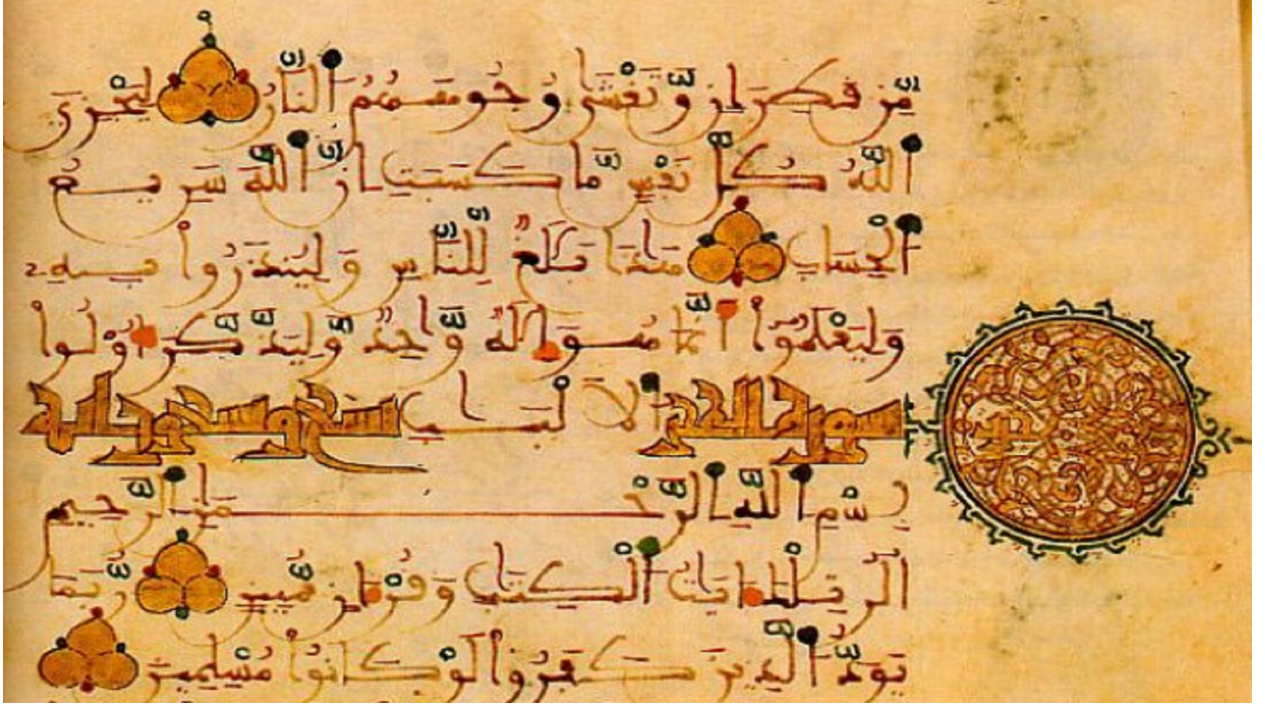 مِّن قَطِرَانٍ وَّتَغْشَىٰ وُجُوهَهُمُ ٱلنَّارُ لِيَجْزِيَ
ٱللَّهُ كُلَّ نَفْسٍ مَّا كَسَبَتِ اِنَّ ٱللَّهَ سَرِيعُ
ٱلْحِسَابِ هَٰذَا بَلَٰغٌ لِّلنَّاسِ وَلِيُنذَرُواْ بِهِۦ
وَلِيَعْلَمُوٓاْ أَنَّمَا هُوَ إِلَٰهٌ وَّٰحِدٌ وَّلِيَذَّكَّرَ أُوْلُواْ
سورة الحجر ٱلَالْبَٰبِ تسع وتسعون اية
بِسْمِ ٱللَّهِ ٱلرَّحْمَٰنِ ٱلرَّحِيمِ
الٓر تِلْكَ ءَايَٰتُ ٱلْكِتَٰبِ وَقُرْءَانٍ مُّبِينٍ رُّبَمَا
يَوَدُّ ٱلَّذِينَ كَفَرُواْ لَوْ كَانُواْ مُسْلِمِينَ